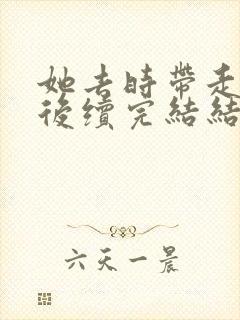 她去時帶走
後續完結結
六天一晨